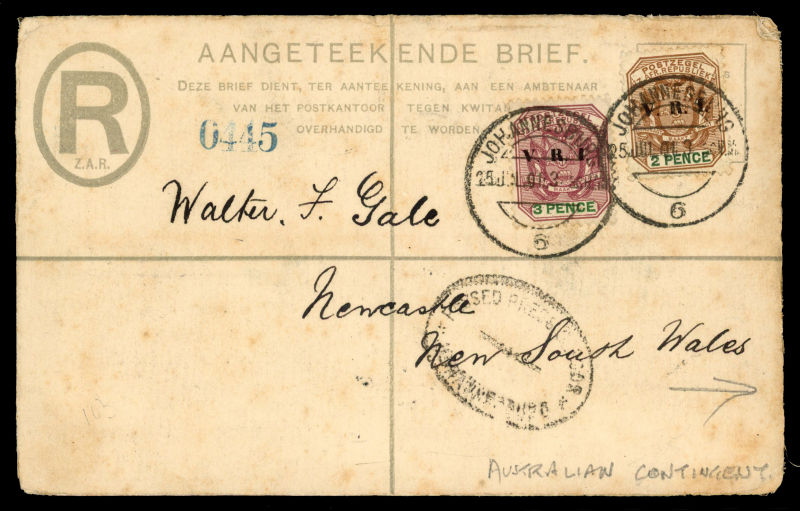 AANGETEEKENDE BRIEF.
DEZE BRIEF DIENT, TER AANTEEKENING, AAN EEN AMBTENAAR
VAN HET POSTKANTOOR TEGEN KWITAN
OVERHANDIGD TE WORDEN
R
Z.A.R.
0445
POSTZEGEL
Z. AFR. REPUBLIEK
V. R. I.
2 PENCE
V. R. I.
3 PENCE
JOHANNESBURG
25 JUL 01
6
JOHANNESBURG
25 JUL 01
6
Walter. F. Gale
Newcastle
New South Wales
PASSED PRESS CENSOR
JOHANNESBURG
103
AUSTRALIAN CONTINGENT.